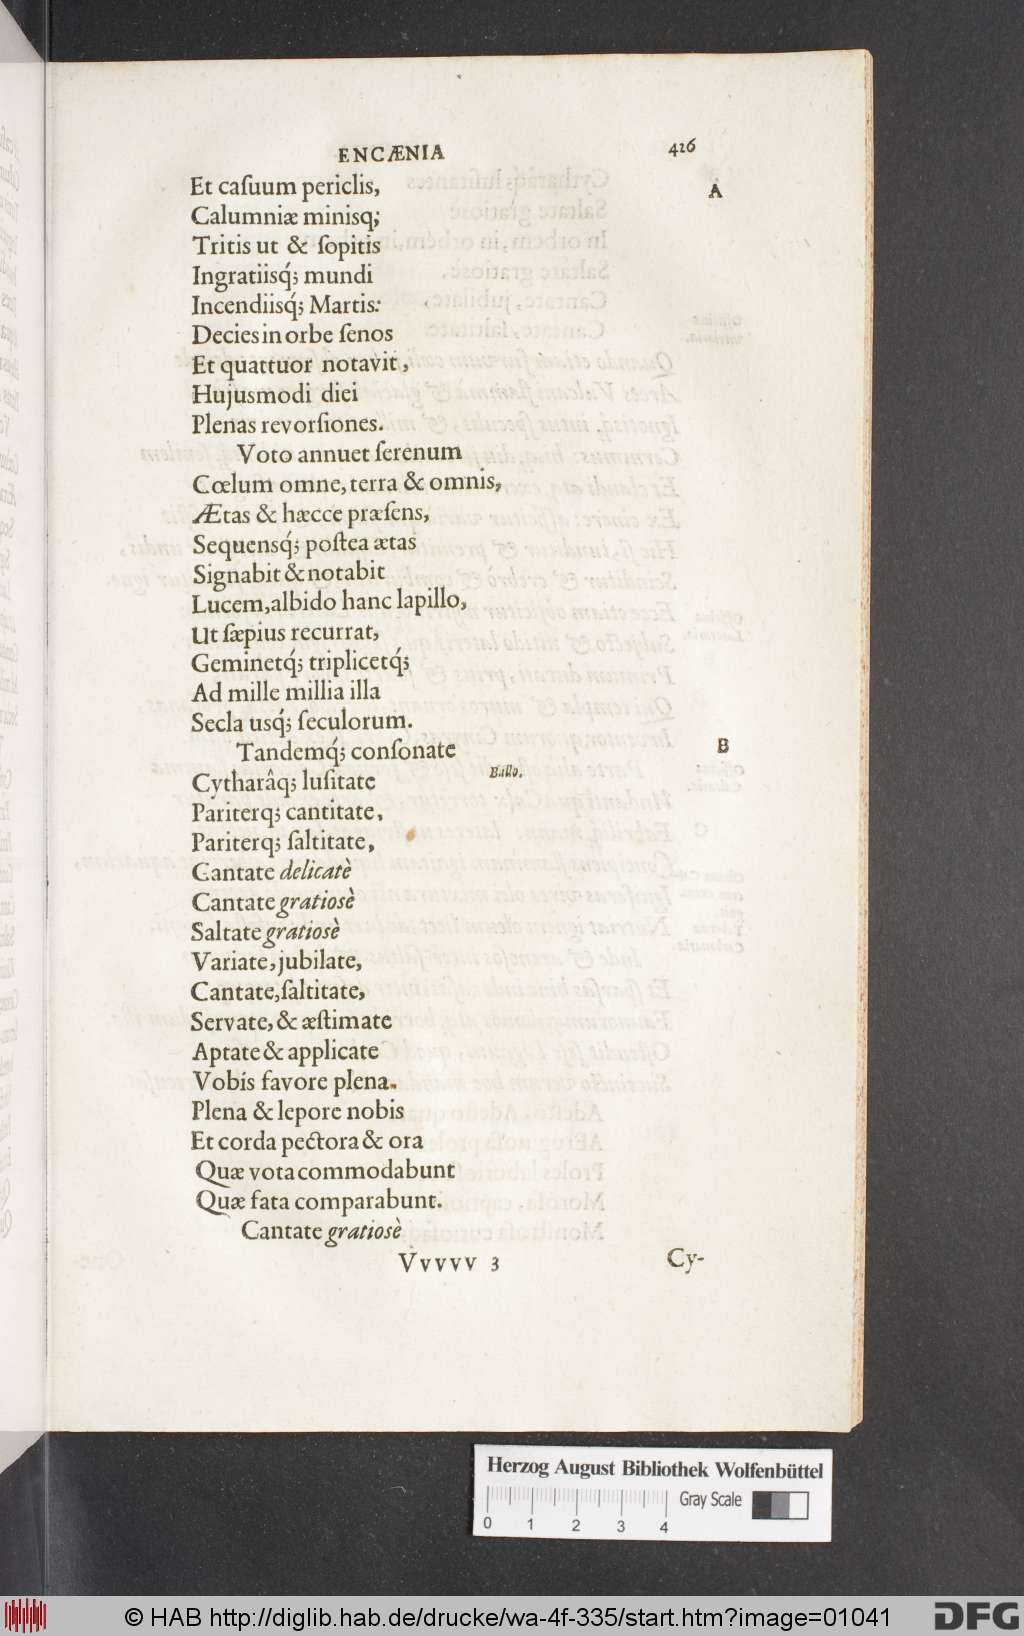 ENCÆNIA 426
Et caſuum periclis,
A
Calumniæ minisq;
Tritis ut & ſopitis
Ingratiisq́; mundi
Incendiisq́; Martis:
Decies in orbe ſenos
Et quattuor notavit,
Hujusmodi diei
Plenas revorſiones.
Voto annuet ſerenum
Cœlum omne, terra & omnis,
Ætas & hæcce præſens,
Sequensq́; poſtea ætas
Signabit & notabit
Lucem, albido hanc lapillo,
Ut ſæpius recurrat,
Geminetq́; triplicetq́;
Ad mille millia illa
Secla usq́; ſeculorum.
Tandemq́; conſonate
B
Cytharâq; luſitate
Ballo.
Pariterq; cantitate,
Pariterq; ſaltitate,
Cantate delicatè
Cantate gratiosè
Saltate gratiosè
Variate, jubilate,
Cantate, ſaltitate,
Servate, & æſtimate
Aptate & applicate
Vobis favore plena.
Plena & lepore nobis
Et corda pectora & ora
Quæ vota commodabunt
Quæ fata comparabunt.
Cantate gratiosè
Vvvvv 3 Cy-
Herzog August Bibliothek Wolfenbüttel
Gray Scale
0 1 2 3 4
© HAB http://diglib.hab.de/drucke/wa-4f-335/start.htm?image=01041
DFG